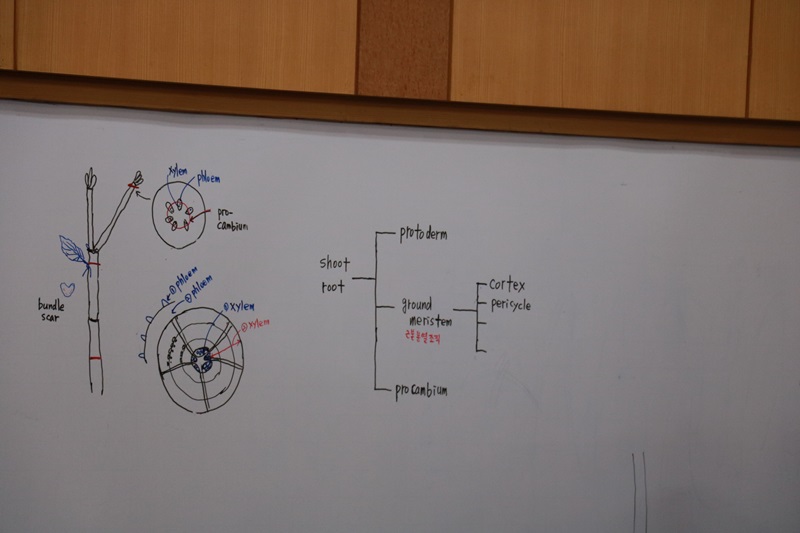 xylem
phloem
pro-
cambium
bundle
scar
②phloem
①phloem
①xylem
②xylem
shoot
root
protoderm
ground
meristem
procambium
cortex
pericycle